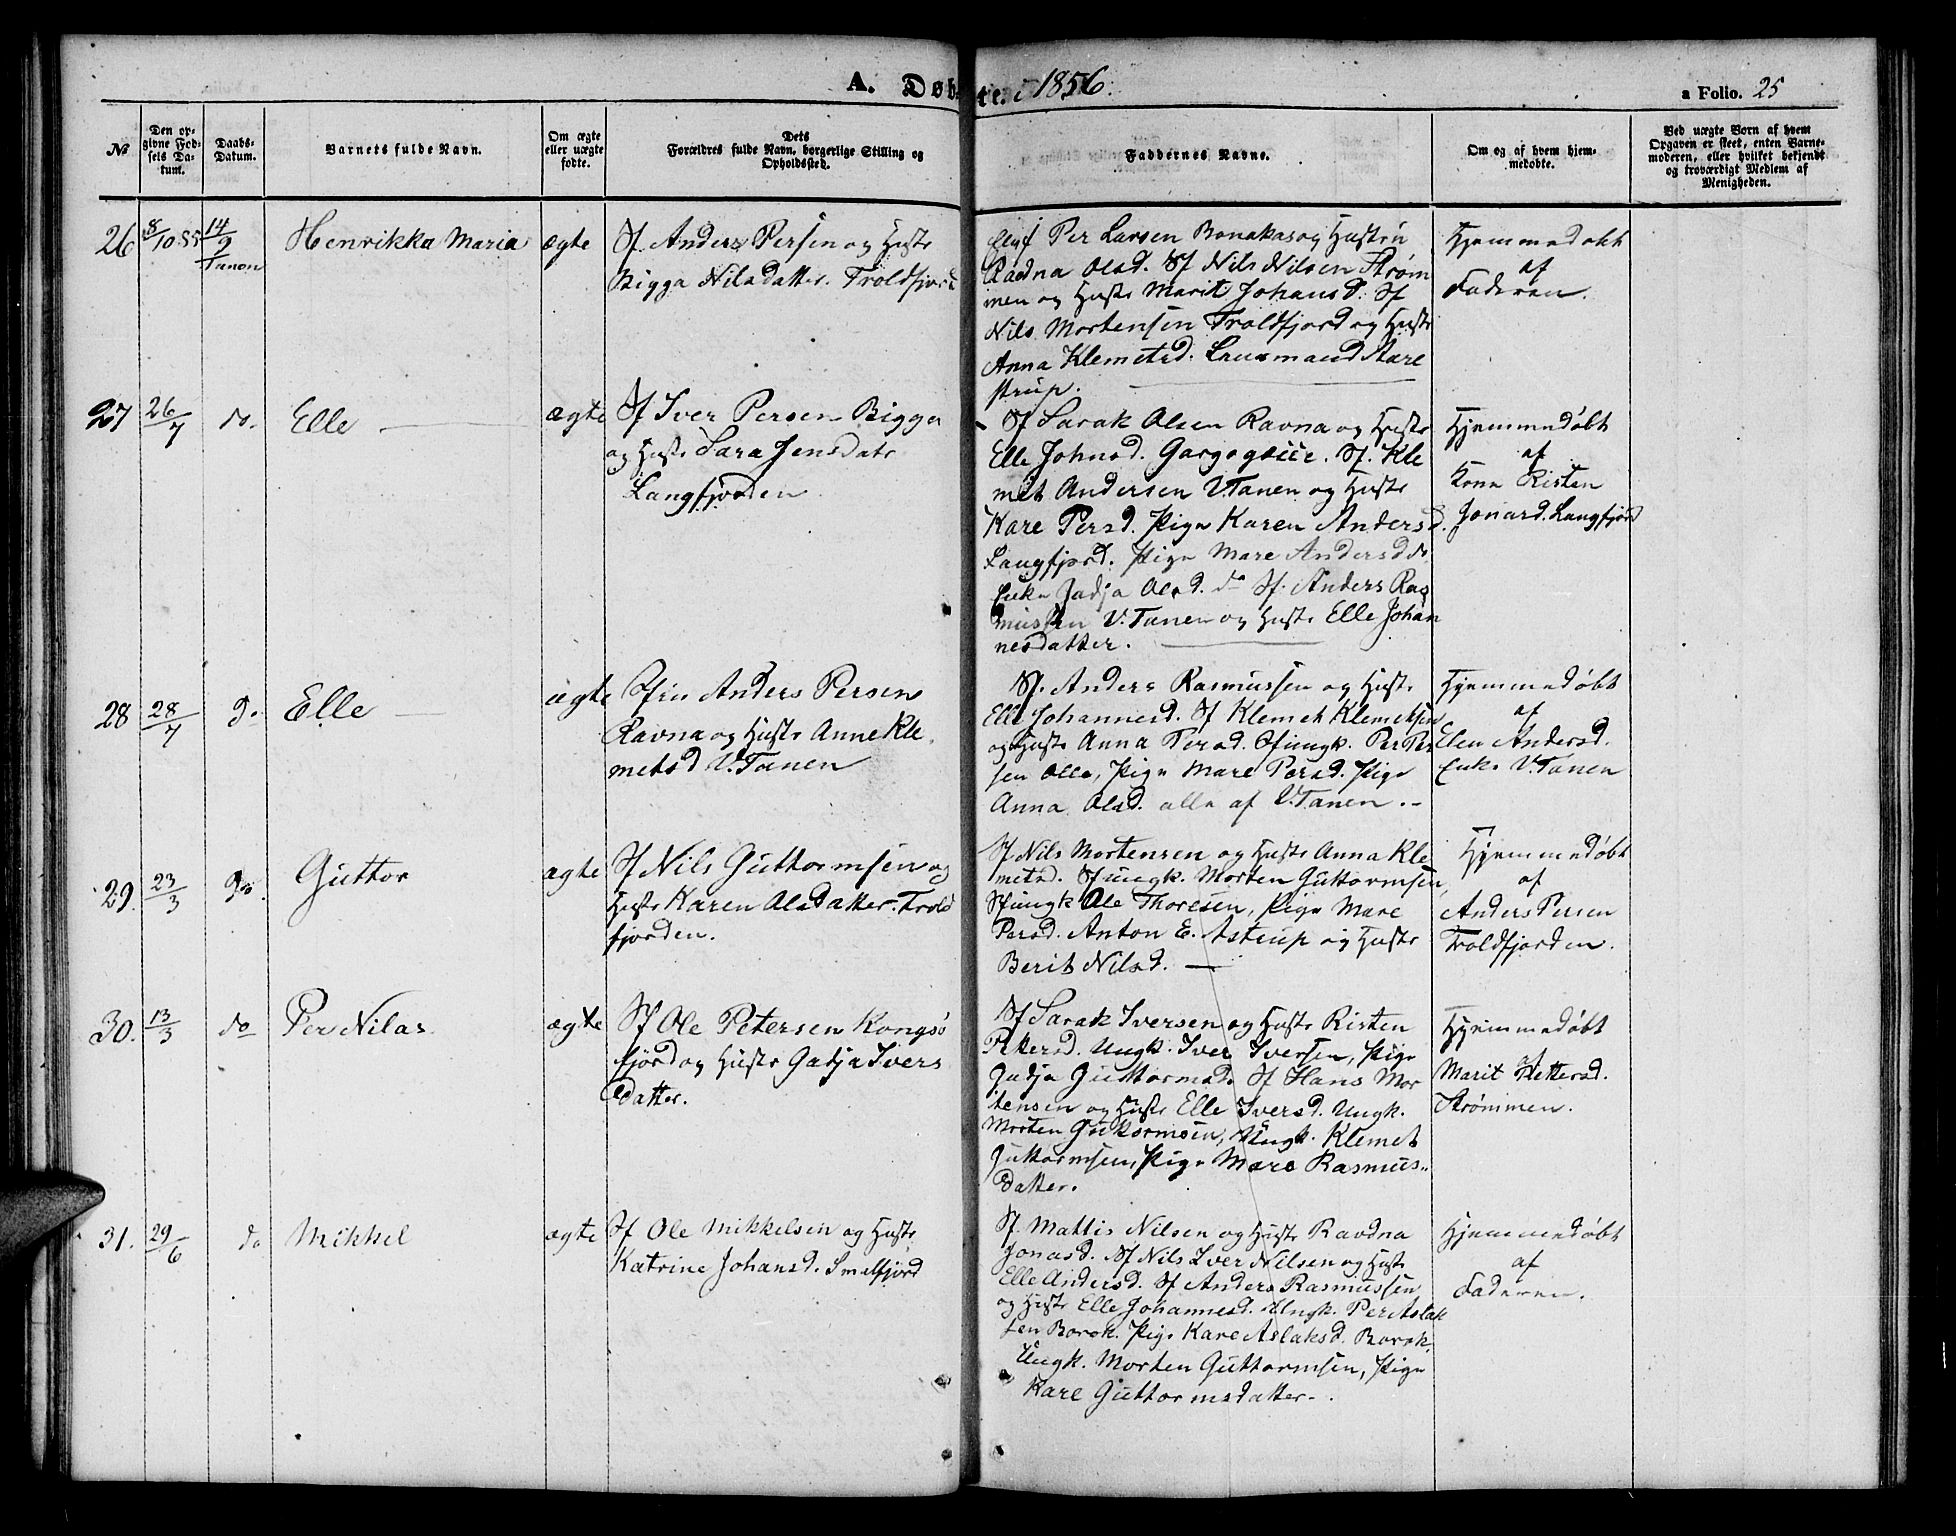 A. Døbte i 1856.
a Folio. 25
No
Den opgivne Fødsels Datum.
Daabs-Datum.
Barnets fulde Navn.
Om ægte eller uægte fødte.
Dets Forældres fulde Navn, borgerlige Stilling og Opholdssted.
Faddernes Navne.
Om og af hvem hjemmedøbte.
Ved uægte Børn af hvem Opgaven er skeet, enten Barnemoderen, eller hvilket bekjendt og troværdigt Medlem af Menigheden.
26
8/10 55
14/9
Tanen
Henrikka Maria
ægte
Sf. Anders Persen og Hustr
Bigga Nilsdatter. Troldfjord
Per Larsen Bonakas og Hustru
Radna Olsd. Sf Nils Nilsen Strøm
men og Hustr Marit Johansd. Sf
Nils Mortensen Troldfjord og Hustr
Anna Klemetsd. Lensmand Aare
strup.
Hjemmedøbt
af
Faderen.
27
26/7
do.
Elle
ægte
Sf Iver Persen Bigga
og Hustr Sara Jensdatr
Langfjorden
Sf Sarak Olsen Ravna og Hustr
Elle Johnsd. Gargogeiie. Sf. Kle
met Andersen V.Tanen og Hustr
Kare Persd. Pige Karen Andersd.
Langfjord. Pige Mare Andersd do
Enke Jadja Olsd. do Sf. Anders Ras
mussen V.Tanen og Hustr Elle Johan
nesdatter.
Hjemmedøbt
af
Kone Risten
Jonasd. Langfjord
28
28/7
do
Elle
ægte
Sfin Anders Persen
Ravna og Hustr Anne Kle
metsd V.Tanen
Sf. Anders Rasmussen og Hustr
Elle Johannesd. Sf Klemet Klemetsen
og Hustr Anna Persd. Sfungk. Per Per
sen Olle, Pige Mare Persd. Pige
Anna Olsd. alle af V.Tanen.
Hjemmedøbt
af
Elen Andersd.
Enke V.Tanen
29.
23/3
do.
Guttor
ægte
Sf Nils Guttormsen og
Hustr Karen Olsdatter. Trold
fjorden.
Sf Nils Mortensen og Hustr Anna Kle
metsd. Sfungk. Morten Guttormsen,
Sfungk Ole Thoresen, Pige Mare
Persd. Anton E. Astrup og Hustr
Berit Nilsd.
Hjemmedøbt
af
Anders Persen
Troldfjorden.
30.
13/3
do
Per Nilas
ægte
Sf Ole Petersen Kongsø
fjord og Hustr Gadja Ivers
datter.
Sf Sarak Iversen og Hustr Risten
Petersd. Ungk. Iver Iversen, Pige
Jadja Guttormsd. Sf Hans Mor
tensen og Hustr Elle Iversd. Ungk.
Morten Guttormsen, Ungk. Klemet
Guttormsen, Pige Mare Rasmus-
datter.
Hjemmedøbt
af
Marit Pettersd.
Strømmen.
31.
29/6
do
Mikkel
ægte
Sf Ole Mikkelsen og Hustr
Katrine Johansd. Smalfjord
Sf. Mattis Nilsen og Hustr Ravdna
Jonasd. Sf Nils Iver Nilsen og Hustr
Elle Andersd. Sf Anders Rasmussen
og Hustr Elle Johannesd. Ungk. Per Aslak
sen Borok. Pige Kare Aslaksd. Borok.
Ungk. Morten Guttormsen, Pige
Kare Guttormsdatter.
Hjemmedøbt
af
Faderen.